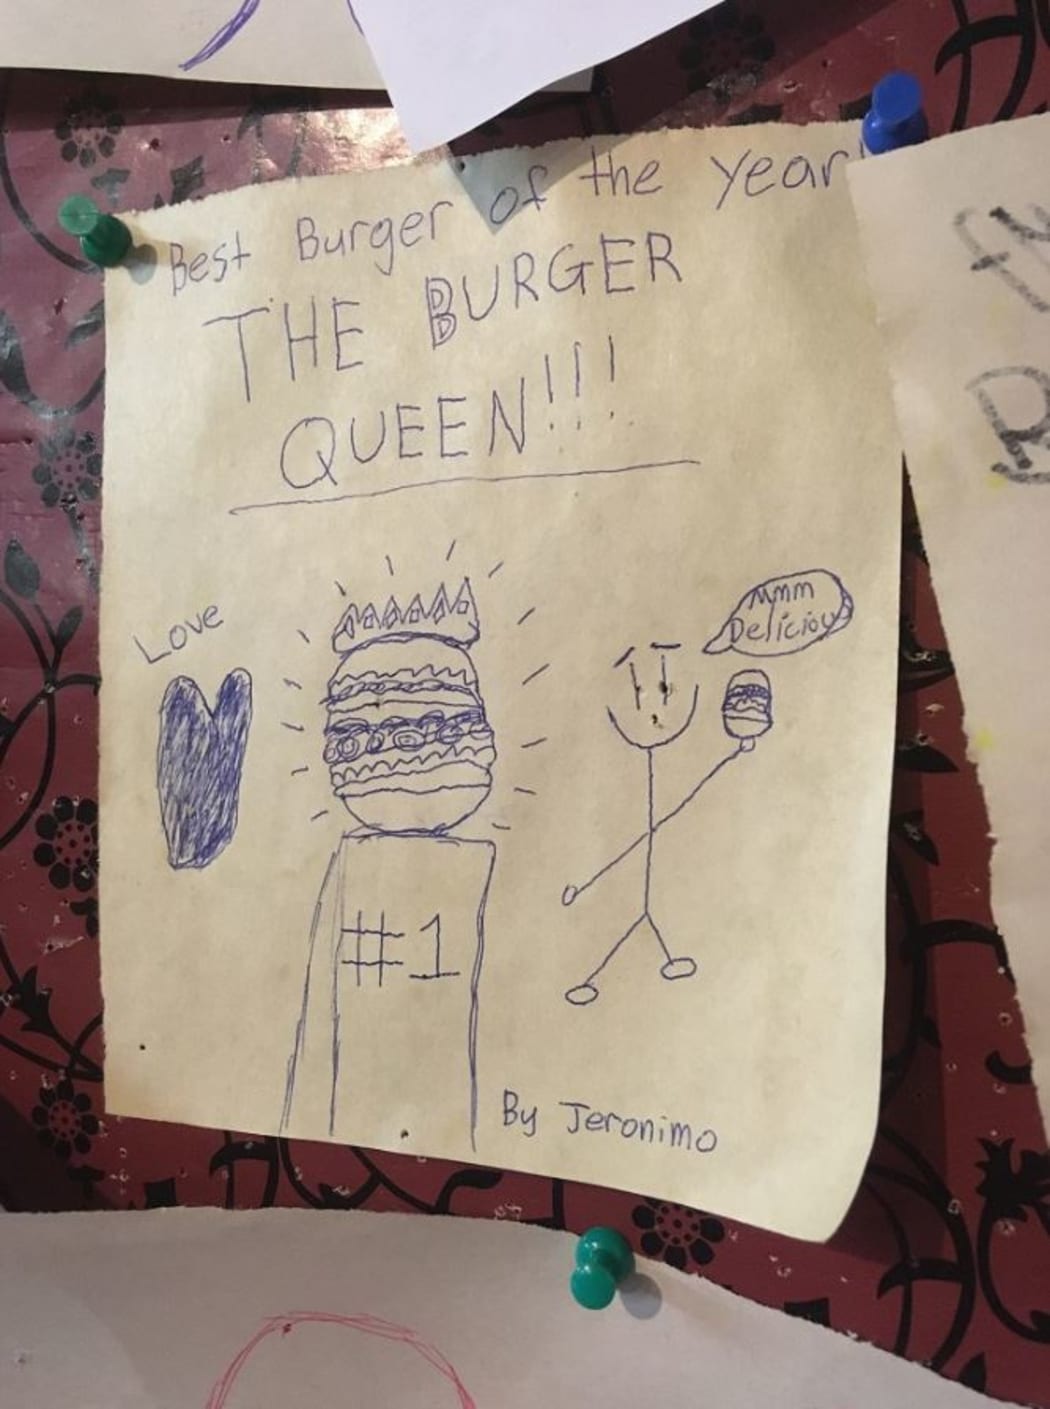 Best Burger of the year!
THE BURGER
QUEEN!!!
Love
Mmm
Delicious
#1
By Jeronimo